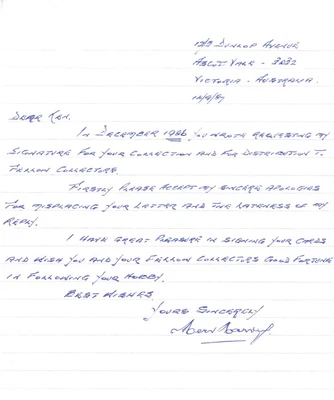 12/3 DUNLOP AVENUE
ASCOT VALE - 3032
VICTORIA - AUSTRALIA.
DEAR KEN.
IN DECEMBER 1986 YOU WROTE REQUESTING MY
SIGNATURE FOR YOUR COLLECTION AND FOR DISTRIBUTION TO
FELLOW COLLECTORS.
FIRSTLY PLEASE ACCEPT MY SINCERE APOLOGIES
FOR MISPLACING YOUR LETTER AND THE LATENESS OF MY
REPLY.
I HAVE GREAT PLEASURE IN SIGNING YOUR CARDS
AND WISH YOU AND YOUR FELLOW COLLECTORS GOOD FORTUNE
IN FOLLOWING YOUR HOBBY.
BEST WISHES
YOURS SINCERELY